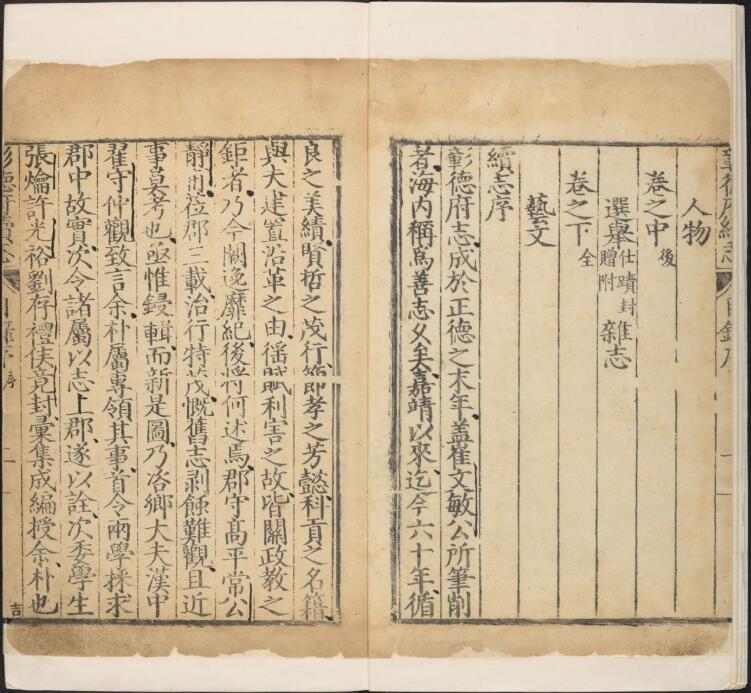 人物
卷之中 後
選舉 仕蹟封贈附 雜志
卷之下 全
藝文
續志序
彰德府志成於正德之末年蓋崔文敏公所筆削
者海内稱爲善志久矣嘉靖以來迄今六十年循
良之美績賢哲之茂行節孝之芳懿科貢之名籍
與夫建置沿革之由徭賦利害之故皆關政教之
鉅者乃今闕逸靡紀後將何述焉郡守高平常公
靜間蒞郡三載治行特茂慨舊志剥蝕難觀且近
事莫考也亟惟鋟輯而新是圖乃咨鄉大夫漢中
翟守仲觀致言余朴屬專領其事首令兩學採求
郡中故實次令諸屬以志上郡遂以詮次委學生
張爚許光裕劉存禮侯竟封彙集成編授余朴也
彰德府續志
目錄序
二
吉